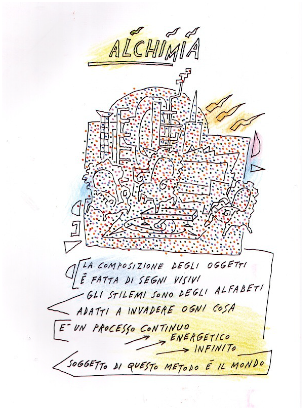 ALCHIMIA
LA COMPOSIZIONE DEGLI OGGETTI
É FATTA DI SEGNI VISIVI
GLI STILEMI SONO DEGLI ALFABETI
ADATTI A INVADERE OGNI COSA
E' UN PROCESSO CONTINUO
ENERGETICO
INFINITO
SOGGETTO DI QUESTO METODO É IL MONDO